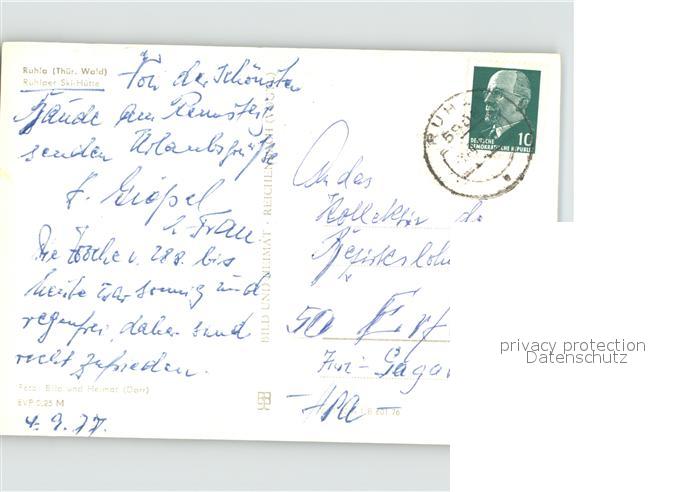 Ruhla (Thür. Wald)
Ruhlaer Ski-Hütte
Von der schönsten
Baude am Rennsteig
senden Urlaubsgrüße
F. Gießel
& Frau
Die Woche v. 28.8. bis
heute war sonnig und
regenfrei, daher sind
recht zufrieden.
Foto: Bild und Heimat (Darr)
EVP 0,25 M
4.9.77.
BILD UND HEIMAT · REICHENBACH
RUH
590
10
DEUTSCHE
DEMOKRATISCHE REPUBLIK
An das
Kollektiv de
Bezirks
50 Erf
Juri-Gagar
privacy protection
Datenschutz